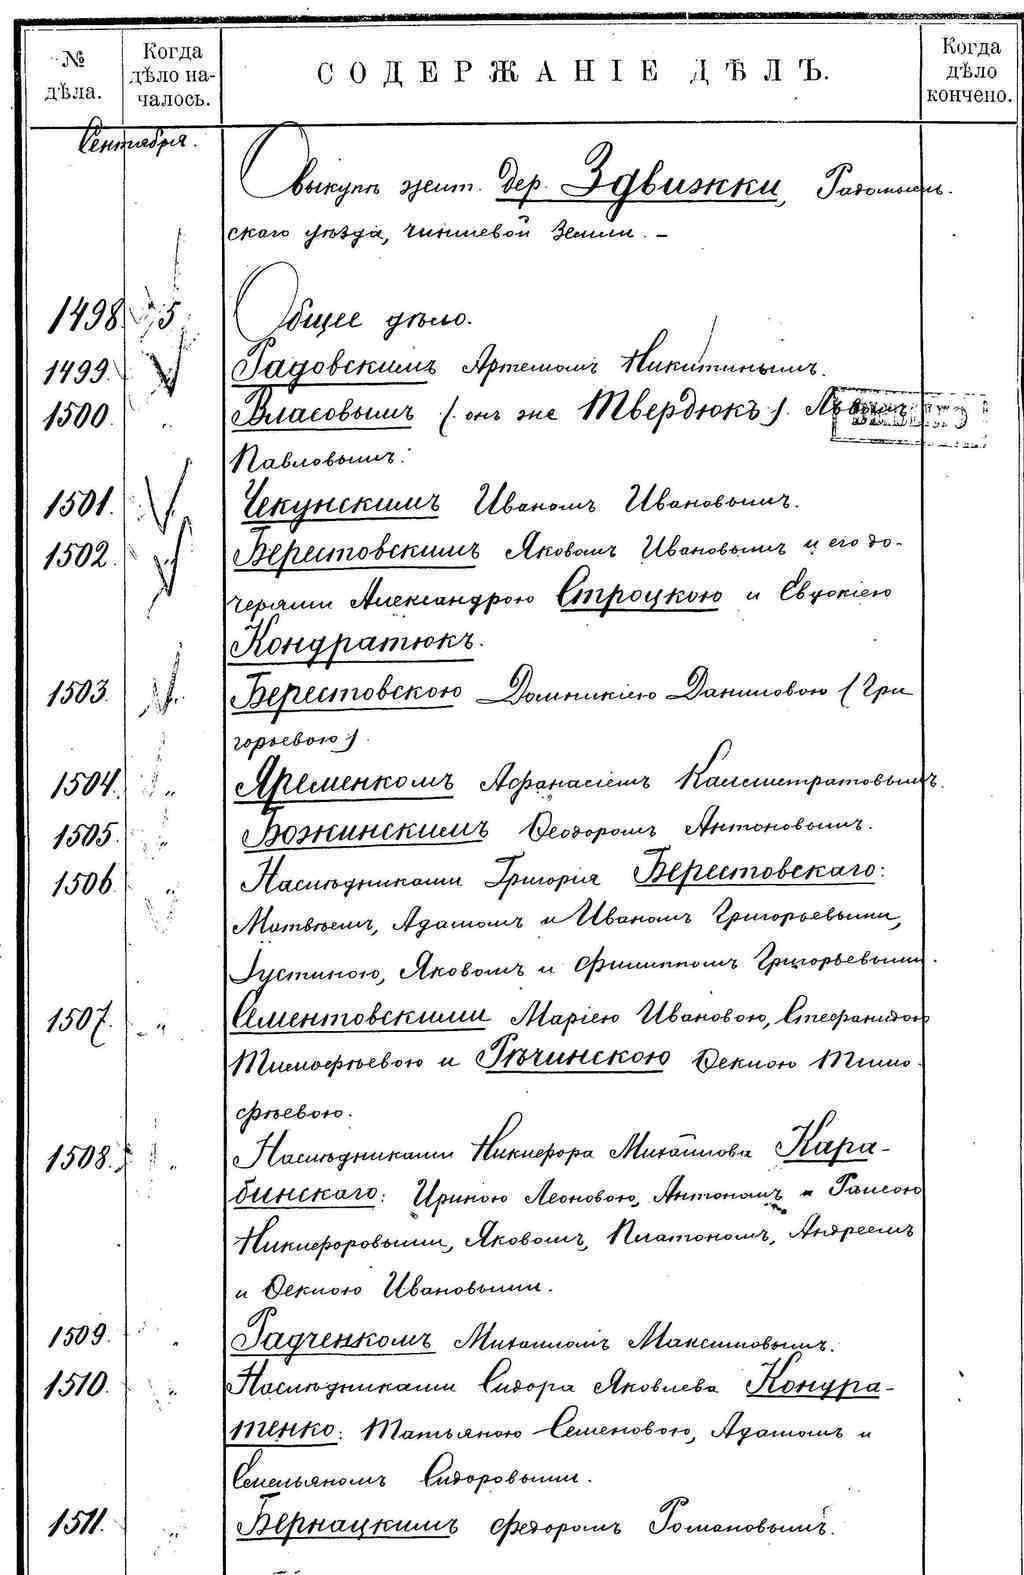 № дѣла.
Когда дѣло на-чалось.
СОДЕРЖАНІЕ ДѢЛЪ.
Когда дѣло кончено.
Сентября.
О выкупѣ жит. дер. Здвижки, Радомысль-
скаго уѣзда, чиншевой земли. –
1498. 5 Общее дѣло.
1499. " Радовскимъ Артемомъ Никитинымъ.
1500. " Власовымъ (онъ же Твердюкъ) Львомъ
Павловымъ.
1501. " Чекунскимъ Иваномъ Ивановымъ.
1502. " Берестовскимъ Яковомъ Ивановымъ и его до-
черями Александрою Строцкою и Евдокіею
Кондратюкъ.
1503. " Берестовскою Домникіею Даниловою (Гри
горьевою).
1504. " Яременкомъ Афанасіемъ Каллистратовымъ.
1505. " Божинскимъ Ѳеодоромъ Антоновымъ.
1506. " Наслѣдниками Григорія Берестовскаго:
Матвѣемъ, Адамомъ и Иваномъ Григорьевыми,
Іустиною, Яковомъ и Филиппомъ Григорьевыми.
1507. " Сементовскими Маріею Ивановою, Стефанидою
Тимофѣевою и Рѣчинскою Ѳеклою Тимо-
фѣевою.
1508. " Наслѣдниками Никифора Михайлова Кара-
бинскаго: Ириною Леоновою, Антономъ и Раисою
Никифоровыми, Яковомъ, Платономъ, Андреемъ
и Ѳеклою Ивановыми.
1509. " Радченкомъ Михаиломъ Максимовымъ.
1510. " Наслѣдниками Сидора Яковлева Кондра-
тенко: Татьяною Семеновою, Адамомъ и
Емельяномъ Сидоровыми.
1511. " Бернацкимъ Федоромъ Романовымъ.